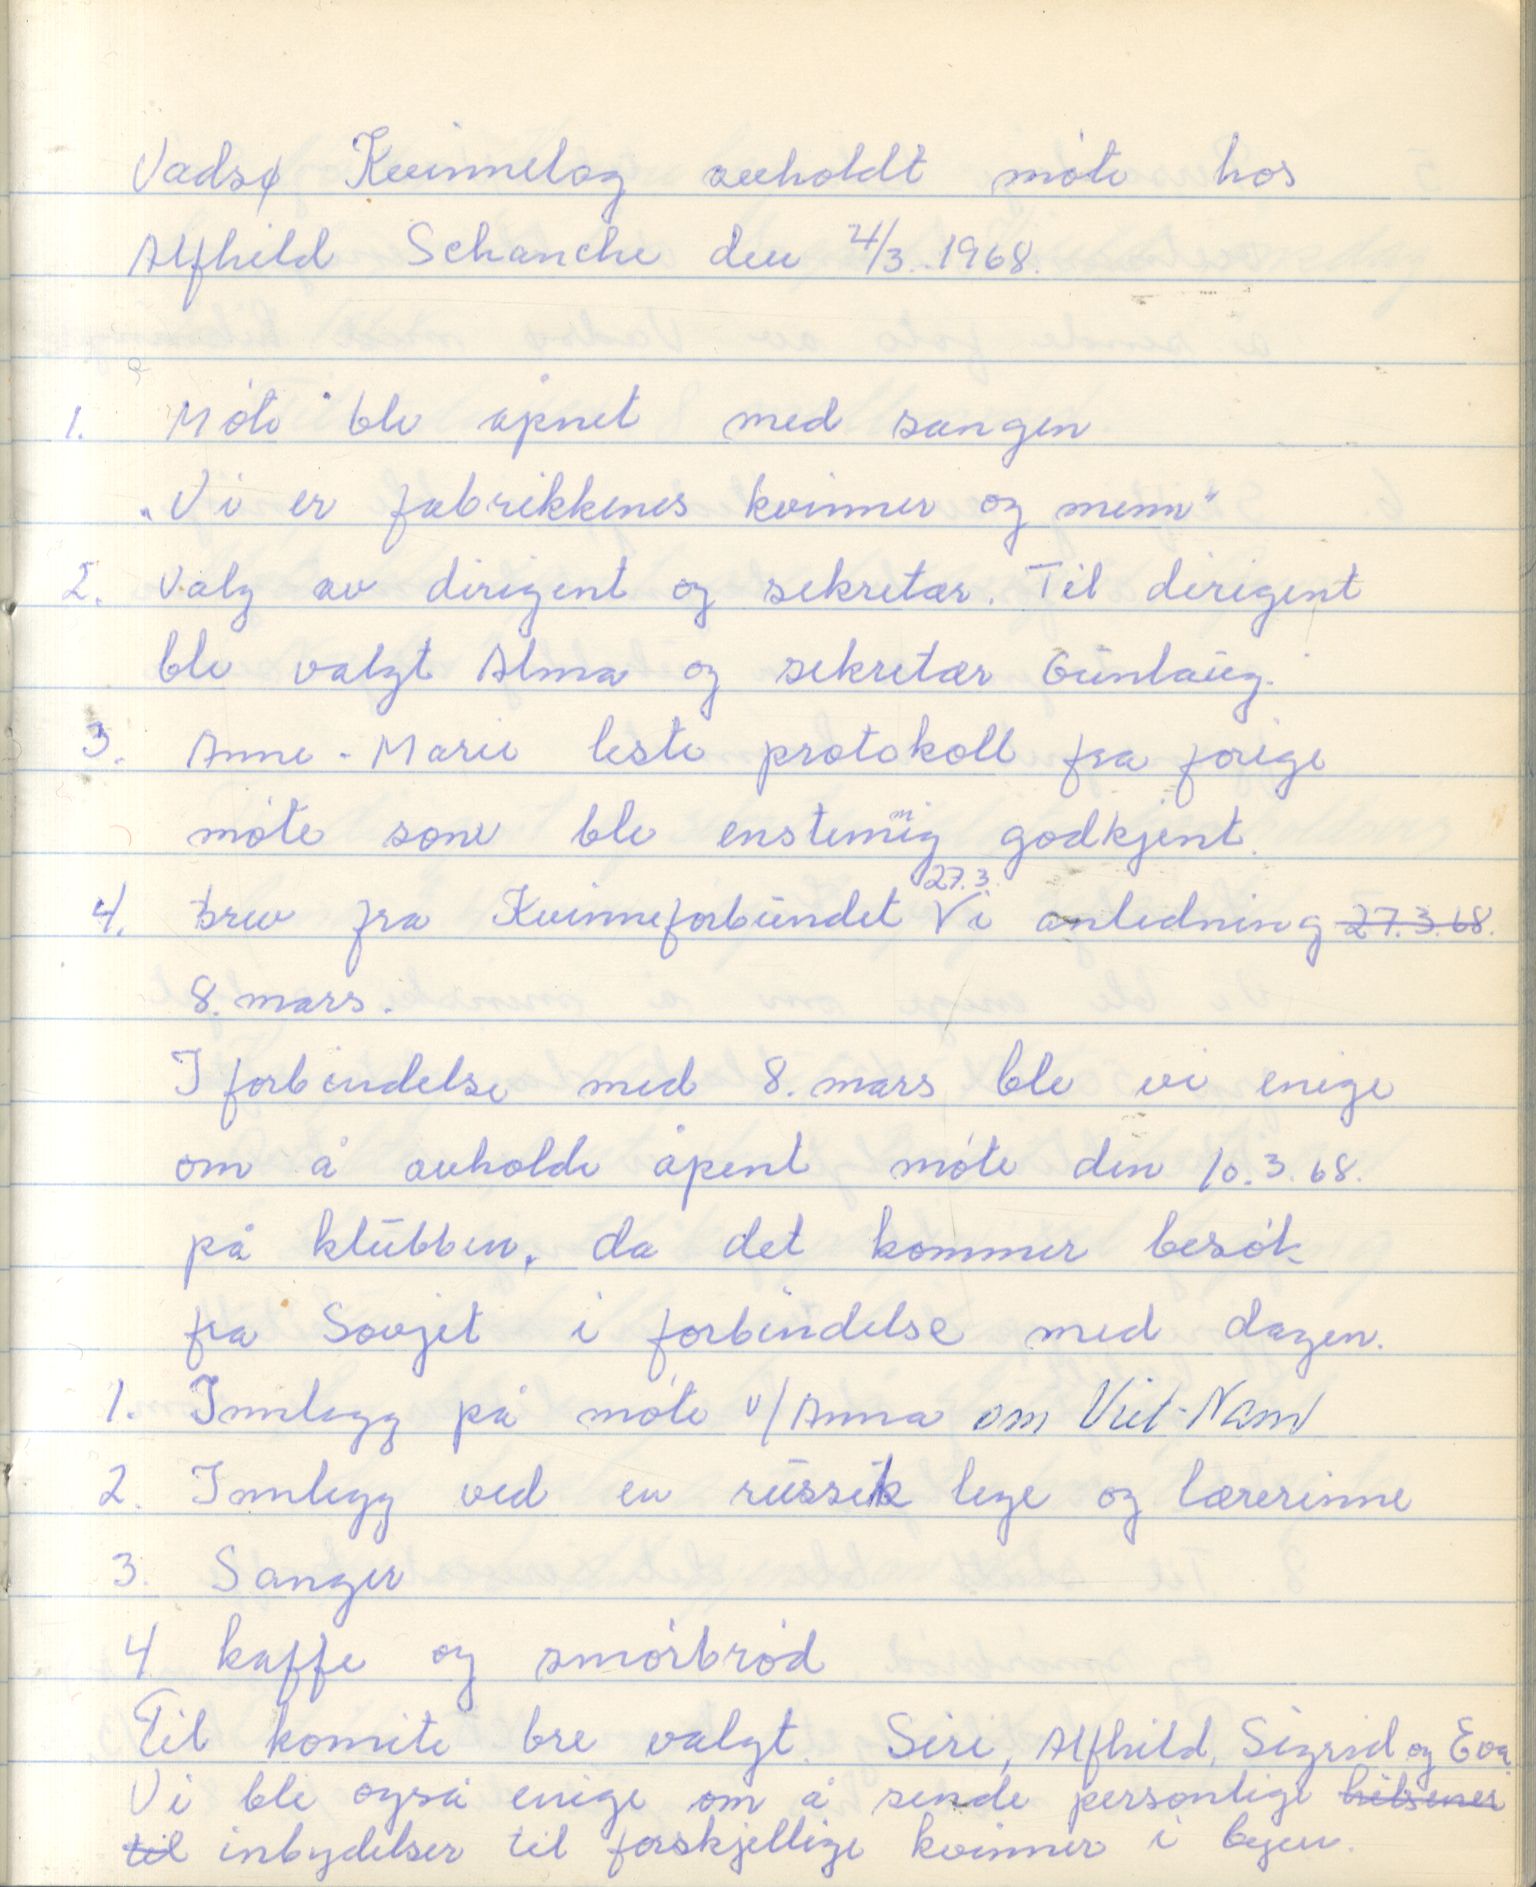 Vadsø Kvinnelag avholdt møte hos
Alfhild Schanche den 4/3. 1968.
1. Møte ble åpnet med sangen
"Vi er fabrikkenes kvinner og menn"
2. Valg av dirigent og sekretær. Til dirigent
ble valgt Alma og sekretær Gunlaug.
3. Anne-Marie leste protokoll fra forige
møte som ble enstemmig godkjent.
4. Brev fra Kvinneforbundet 27.3. Vi anledning 27.3.68.
8. mars.
I forbindelse med 8. mars ble vi enige
om å avholde åpent møte den 10.3.68.
på klubben, da det kommer besøk
fra Sovjet i forbindelse med dagen.
1. Innlegg på møte v/Anna om Viet-Nam
2. Innlegg ved en russisk lege og lærerinne
3. Sanger
4 kaffe og smørbrød
Til komite bre valgt. Siri, Alfhild, Sigrid og Eva.
Vi ble også enige om å sende personlige hilsener
til inbydelser til forskjellige kvinner i byen.